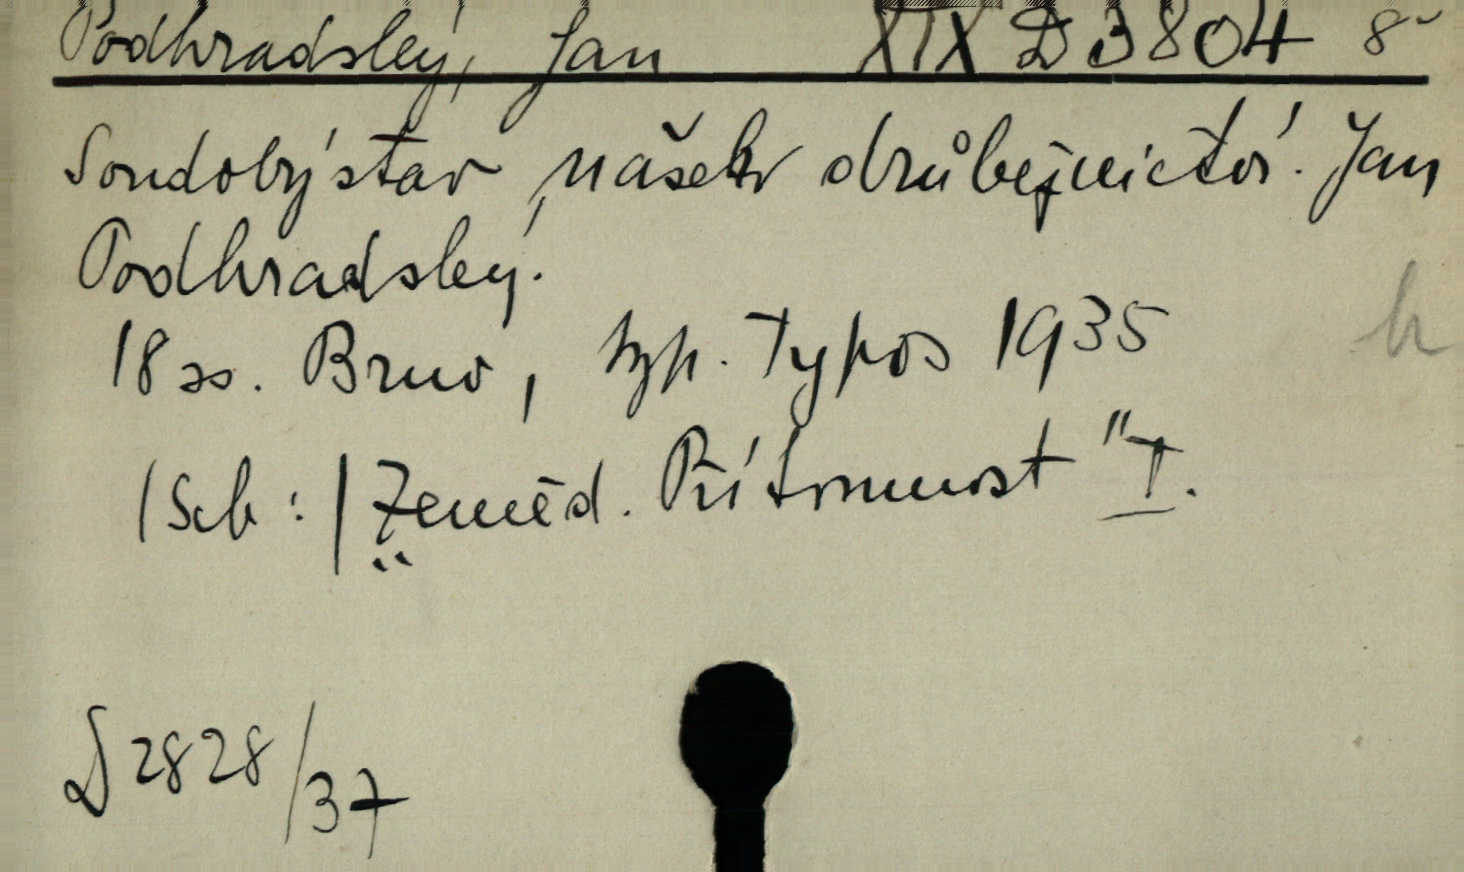 Podhradský, Jan XIX D 3804 8°
Soudobý stav našeho drůbežnictví. Jan
Podhradský.
18 ss. Brno, typ. Typos 1935
(Sb:) Zeměd. Přítomnost" I.
h
D 2828/37